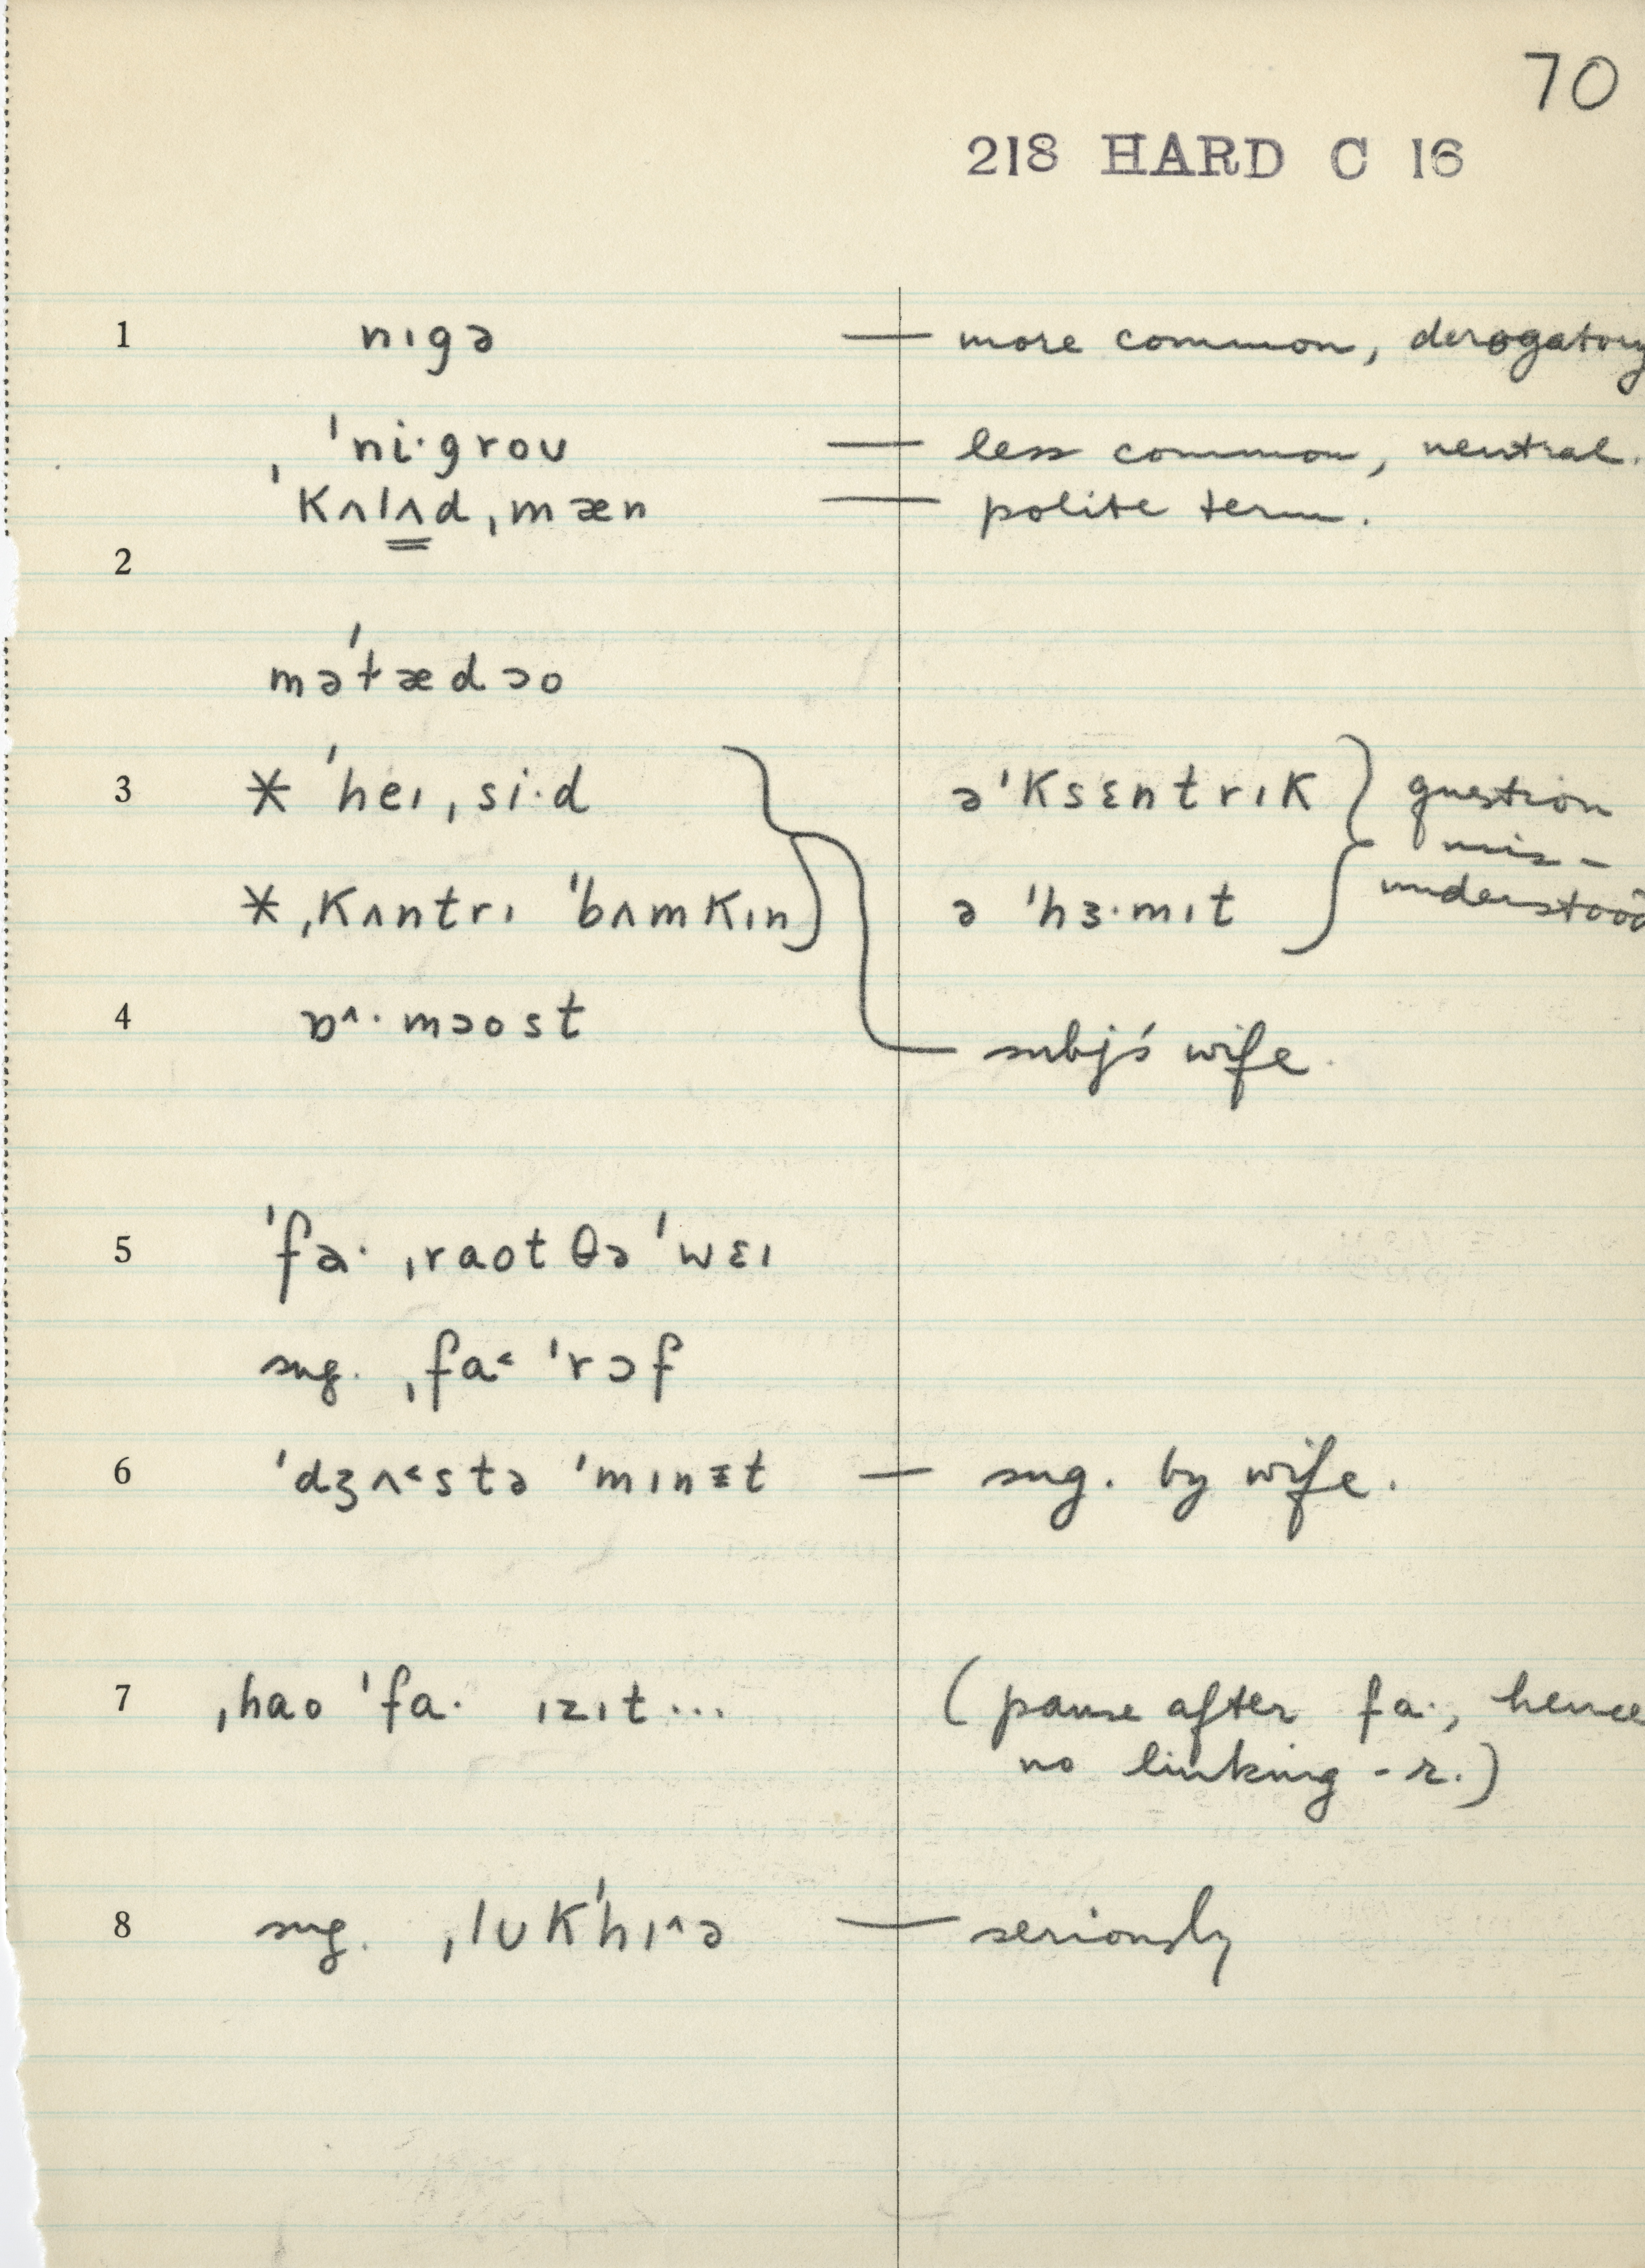 70
218 HARD C 16
1 nɪgə — more common, derogatory
ˈni·groʊ — less common, neutral.
ˈkʌlʌdˌmæn — polite term.
2
məˈtædɔo
3 * ˈheɪˌsi·d əˈksɛntrɪk } question
mis-
* ˌkʌntrɪ ˈbʌmkɪn ə ˈhɜ·mɪt understood
4 ɒ^·mɔost subj's wife.
5 ˈfə· ˌraot θə ˈwɛɪ
sug. ˌfa˂ ˈrɔf
6 ˈdʒʌ˂stə ˈmɪnɪt — sug. by wife.
7 ˌhao ˈfa· ɪzɪt... (pause after fa·, hence
no linking -r.)
8 sug. ˌlʊkˈhɪ^ə — seriously